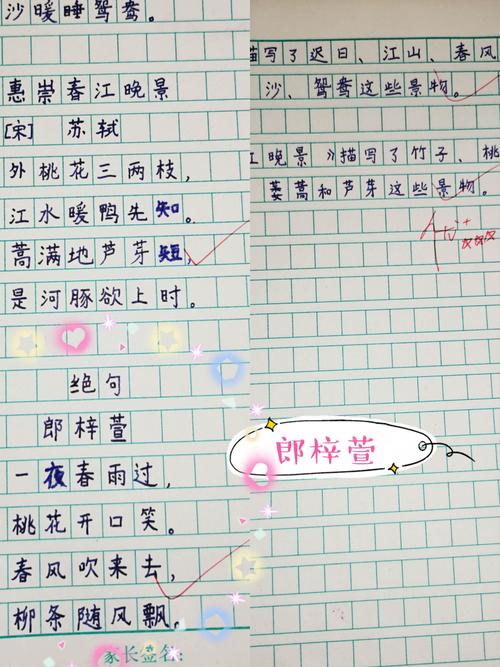 沙暖睡鸳鸯。
惠崇春江晚景
[宋] 苏轼
外桃花三两枝,
江水暖鸭先知。
蒿满地芦芽短,
是河豚欲上时。
绝句
郎梓萱
一夜春雨过,
桃花开口笑。
春风吹来去,
柳条随风飘。
家长签名:
描写了迟日、江山、春风
沙、鸳鸯这些景物。
江晚景》描写了竹子、桃
蒌蒿和芦芽这些景物。
郎梓萱